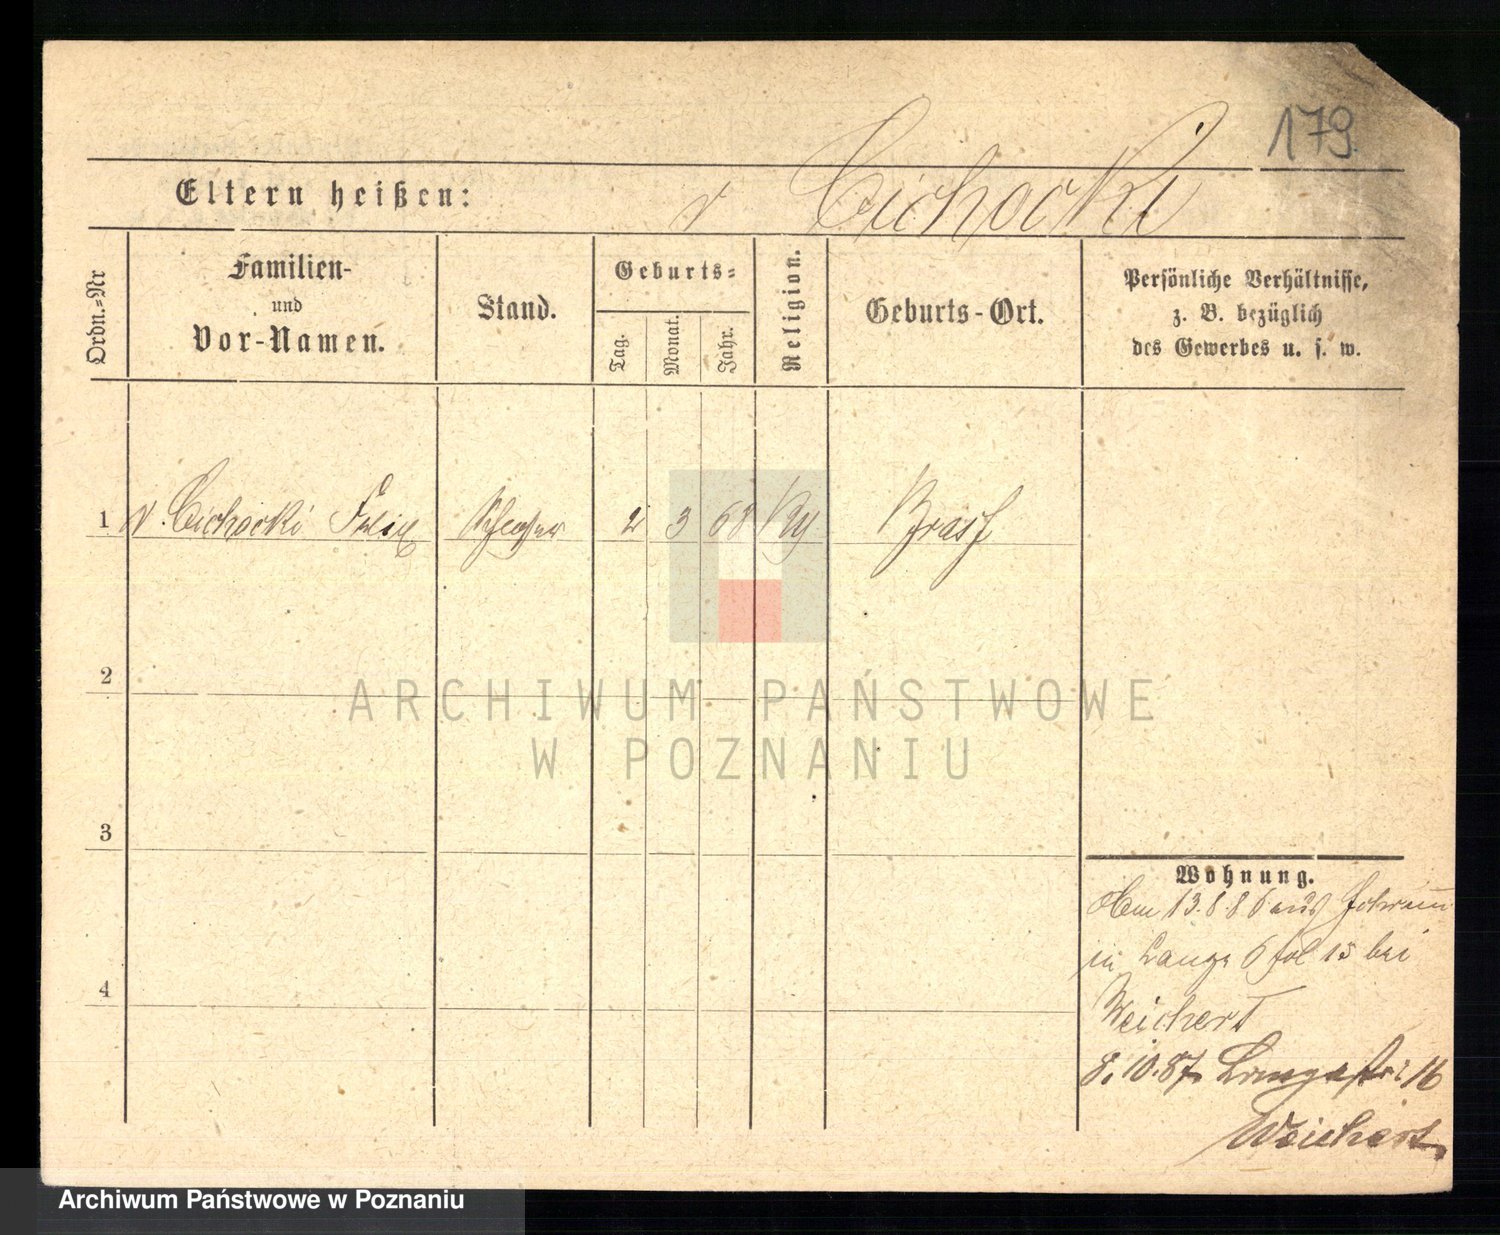 179.
Eltern heißen: v Cichocki
Ordn.-Nr
Familien-
und
Vor-Namen.
Stand.
Geburts-
Tag.
Monat.
Jahr.
Religion.
Geburts-Ort.
Persönliche Verhältnisse,
z. B. bezüglich
des Gewerbes u. s. w.
1 v. Cichocki Felix Schlosser 2 3 68
2
3
4
Wohnung.
13.8.86 aus
in Lange 6 fol 15 bei
Weichert
8.10.87. Langestr 16
Weichert
ARCHIWUM PAŃSTWOWE
W POZNANIU
Archiwum Państwowe w Poznaniu